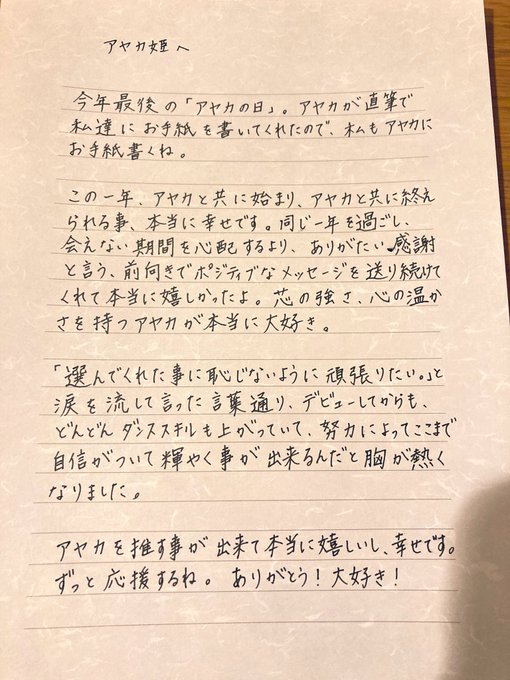 アヤカ姫へ
今年最後の「アヤカの日」。アヤカが直筆で
私達にお手紙を書いてくれたので、私もアヤカに
お手紙書くね。
この一年、アヤカと共に始まり、アヤカと共に終え
られる事、本当に幸せです。同じ一年を過ごし、
会えない期間を心配するより、ありがたい感謝
と言う、前向きでポジティブなメッセージを送り続けて
くれて本当に嬉しかったよ。芯の強さ、心の温か
さを持つアヤカが本当に大好き。
「選んでくれた事に恥じないように頑張りたい。」と
涙を流して言った言葉通り、デビューしてからも、
どんどんダンススキルも上がっていて、努力によってここまで
自信がついて輝やく事が出来るんだと胸が熱く
なりました。
アヤカを推す事が出来て本当に嬉しいし、幸せです。
ずっと応援するね。ありがとう!大好き!